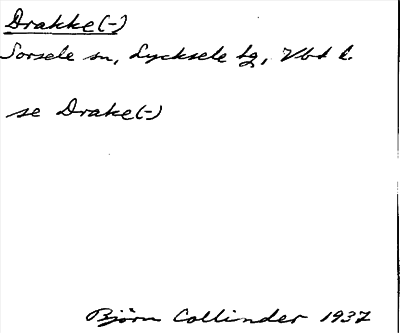 Drakke(-)
Sorsele sn, Lycksele tg, Vbt l.
se Drake(-)
Björn Collinder 1937